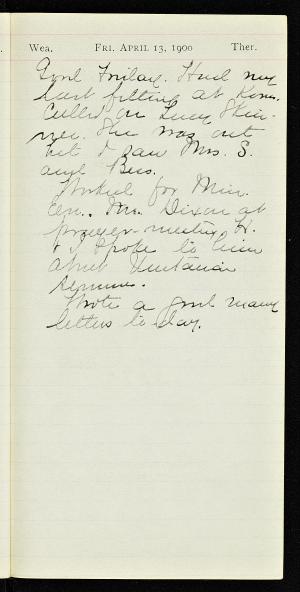 Wea. FRI. APRIL 13, 1900 Ther.
Good Friday. Had my
last fitting at
Called on Lucy Skin-
ner. She was out
but I saw Mrs. S.
and Bess.
Worked for
Mr. Dixon at
prayer-meeting. H.
& I spoke to him
about Unitarian
sermons.
Wrote a good many
letters to-day.